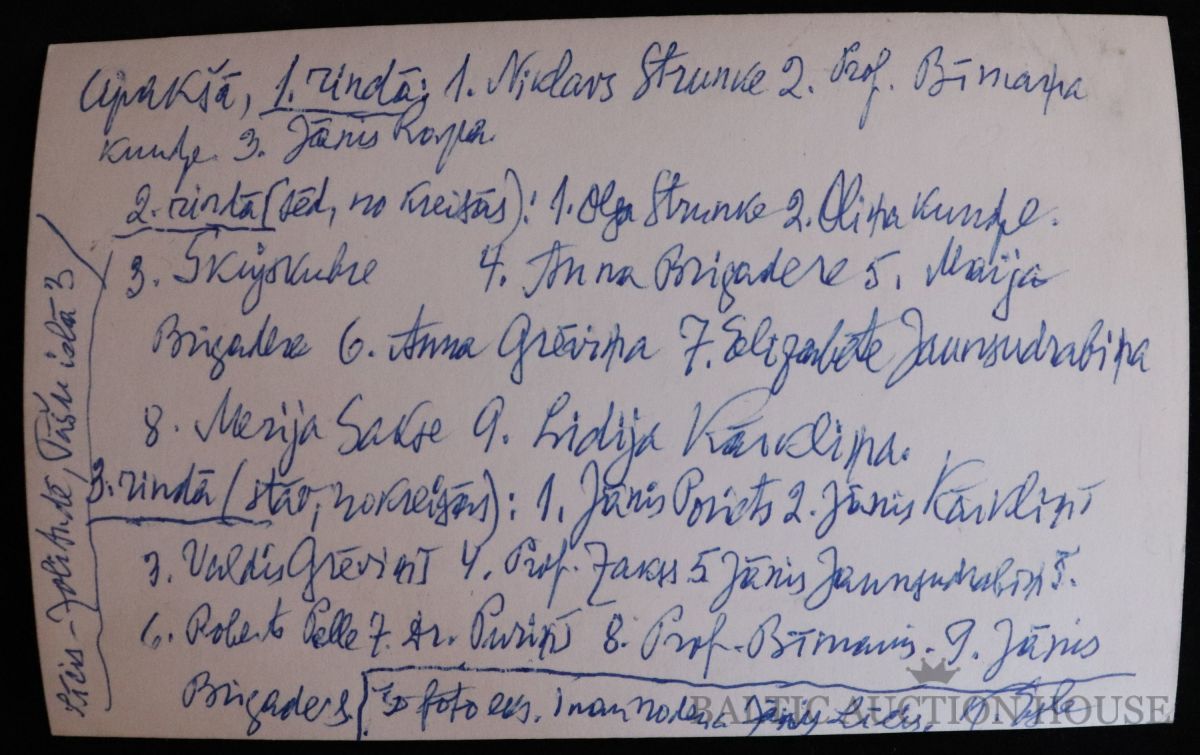 Apakšā, 1. rindā: 1. Niklavs Strunke 2. Prof. Bīmaņa
kundze 3. Jānis Roze.
2. rindā (sēd, no kreisās): 1. Olga Strunke 2. Oliņa kundze.
3. 4. Anna Brigadere 5. Maija
Brigadere 6. Anna Grēviņa 7. Elizabete Jaunsudrabiņa
8. Merija Sakse 9. Lidija Kārkliņa.
3. rindā (stāv, no kreisās): 1. Jānis Poriets 2. Jānis Kārkliņš
3. Valdis Grēviņš 4. Prof. Zakss 5 Jānis Jaunsudrabiņš.
6. Roberts Pelle 7. Dr. Puriņš 8. Prof. Bīmanis. 9. Jānis
Brigaders. Šo foto eks. Jānis
Jolitude, 3
BALTIC AUCTION HOUSE